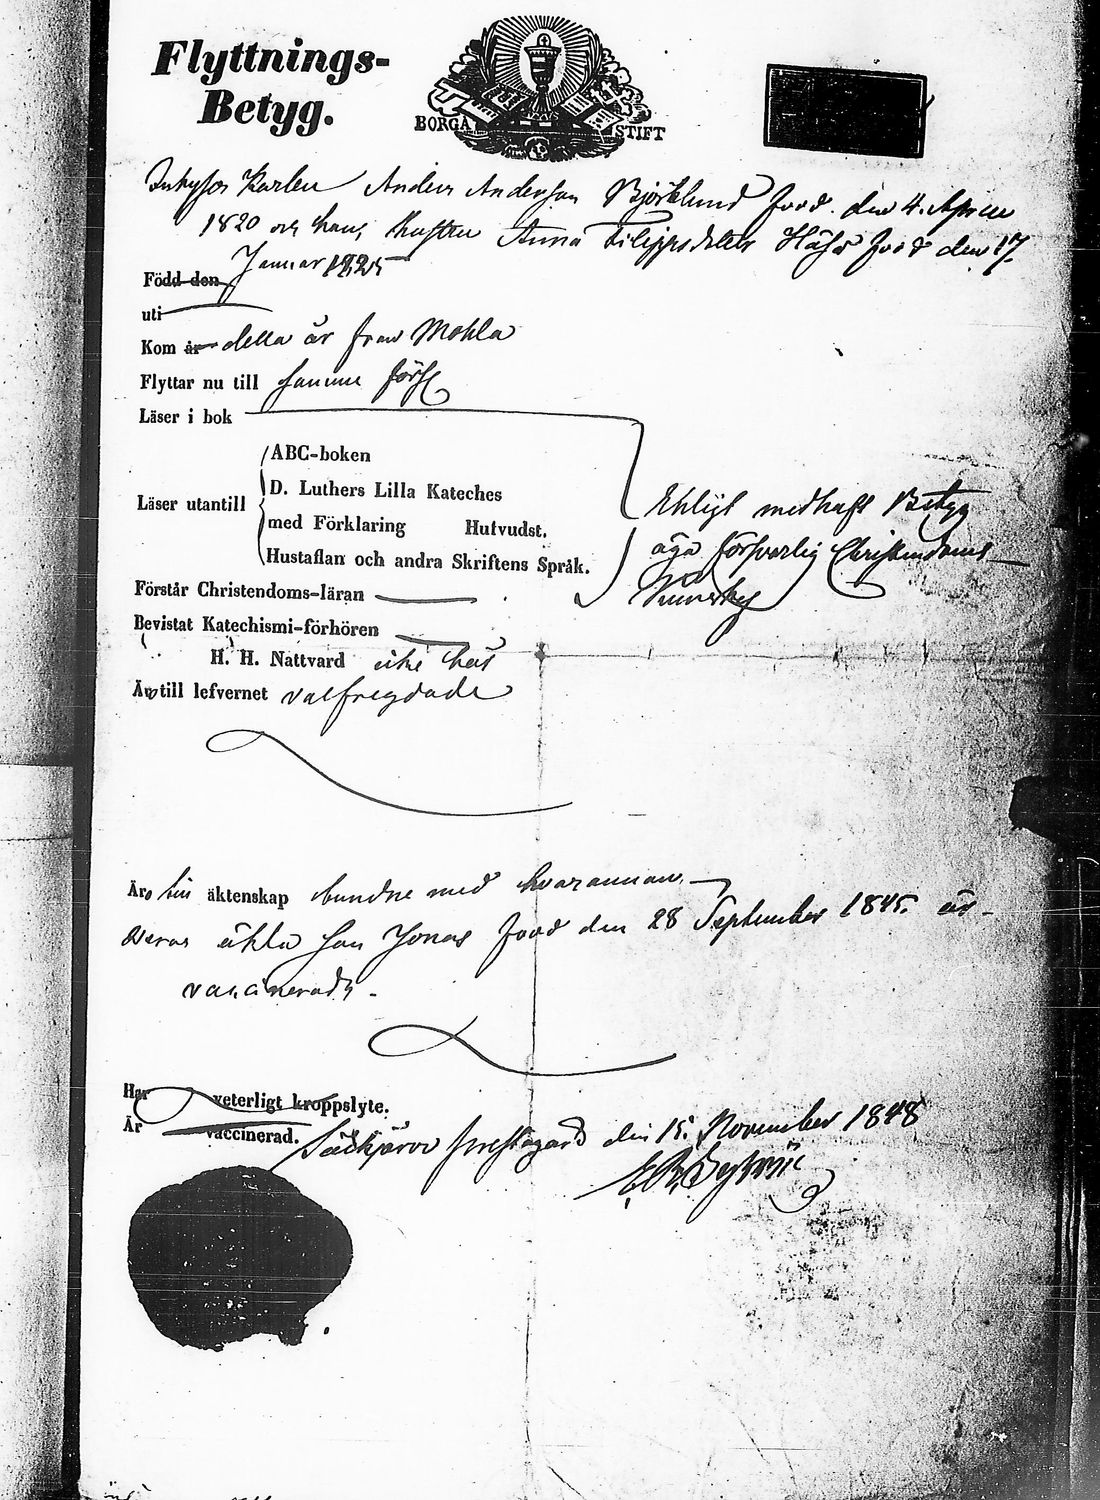 Flyttnings-
Betyg.
BORGÅ STIFT
Inhyses Karlen Anders Andersson Björklund född. den 4. April
1820 och hans hustru Anna Filippsdotter född den 17.
Januar 1825
Född den
uti
Kom är della är från Mohla
Flyttar nu till samme förs
Läser i bok
ABC-boken
D. Luthers Lilla Kateches
Läser utantill
med Förklaring Hufvudst.
Hustaflan och andra Skriftens Språk.
Ehligt medhaft Betyg
äga försvarlig Christendoms
Kunskap
Förstår Christendoms-läran
Bevistat Katechismi-förhören
H. H. Nattvard icke här
Äro till lefvernet valfregdade
Äro till äktenskap bundne med hvarannan.
Deras äkta son Jonas född den 28 September 1845. är
vaccinerad.
Har veterligt kroppslyte.
Är vaccinerad.
Säckjärvi prestgård den 15. November 1848